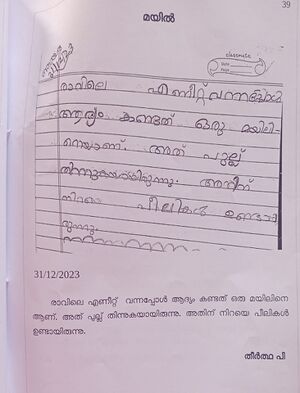 39
മയിൽ
classmate
Date
Page
രാവിലെ എണീറ്റ് വന്നപ്പോൾ
ആദ്യം കണ്ടത് ഒരു മയിലി-
നെയാണ്. അത് പുല്ല്
തിന്നുകയായിരുന്നു. അതിന്
നിറയെ പീലികൾ ഉണ്ടാ
യിരുന്നു.
31/12/2023
രാവിലെ എണീറ്റ് വന്നപ്പോൾ ആദ്യം കണ്ടത് ഒരു മയിലിനെ
ആണ്. അത് പുല്ല് തിന്നുകയായിരുന്നു. അതിന് നിറയെ പീലികൾ
ഉണ്ടായിരുന്നു.
തീർത്ഥ പി